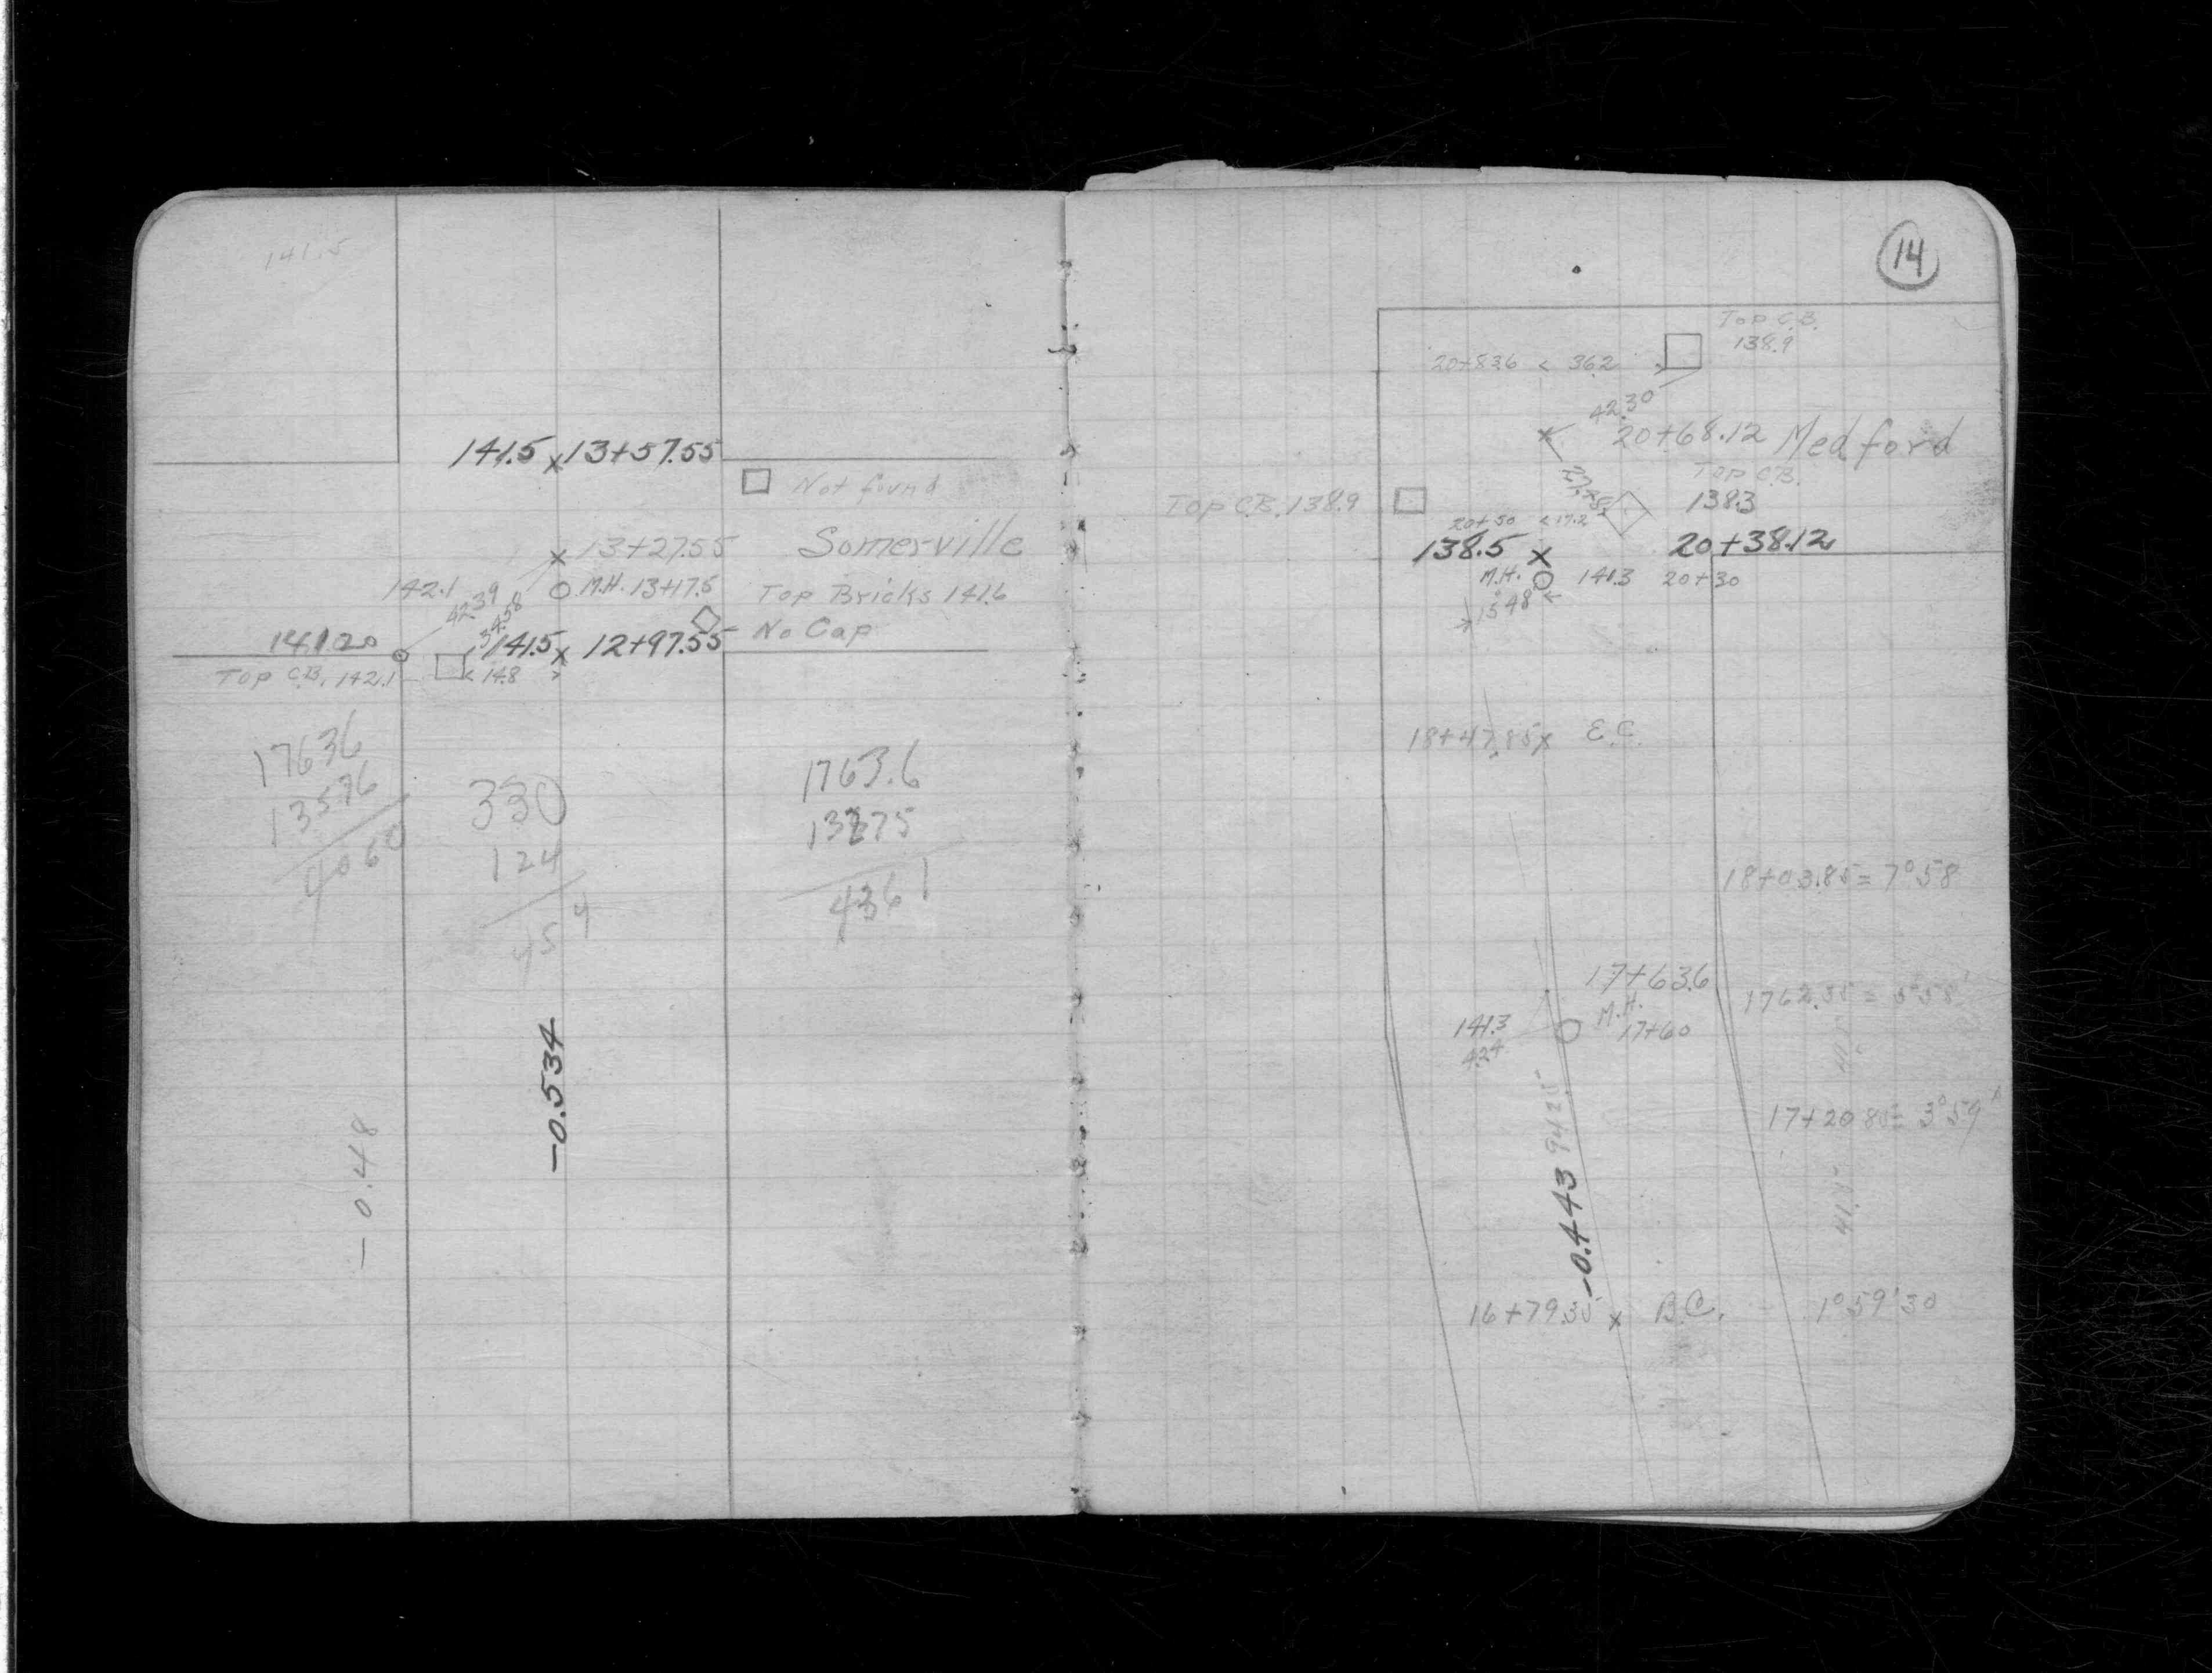 141.5
141.5 x 13+57.55
Not found
x 13+27.55 Somerville
142.1 M.H. 13+17.5 Top Bricks 141.6
42.39
34.58
No Cap
141.20 141.5 x 12+97.55
Top C.B. 142.1 < 14.8 >
17636
13576
4060
330
124
454
1763.6
4361
-0.534
-0.48
14
Top C.B.
138.9
20+83.6 < 36.2 >
42.30
20+68.12 Medford
Top C.B.
138.3
Top C.B. 138.9
20+50 < 17.2
138.5 x 20+38.12
M.H. 141.3 20+30
15.48
18+47.85 x E.C.
18+03.85 = 7°58
17+63.6
M.H.
17+60
141.3
424
1762.35 = 5°58'
17+20.85 = 3°59'
41.5
-0.443
16+79.35 x B.C. 1°59'30